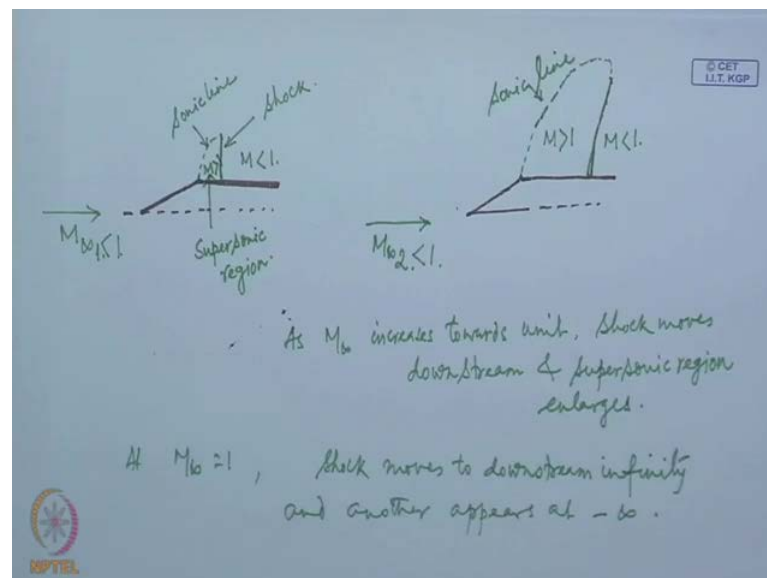 © CET
I.I.T. KGP
Sonic line
Shock.
M>1
M<1.
M∞1<1
Supersonic
region.
Sonic line
M>1
M<1.
M∞2<1.
As M∞ increases towards unit, Shock moves
downstream & supersonic region
enlarges.
At M∞=1, Shock moves to downstream infinity
and another appears at -∞.
NPTEL